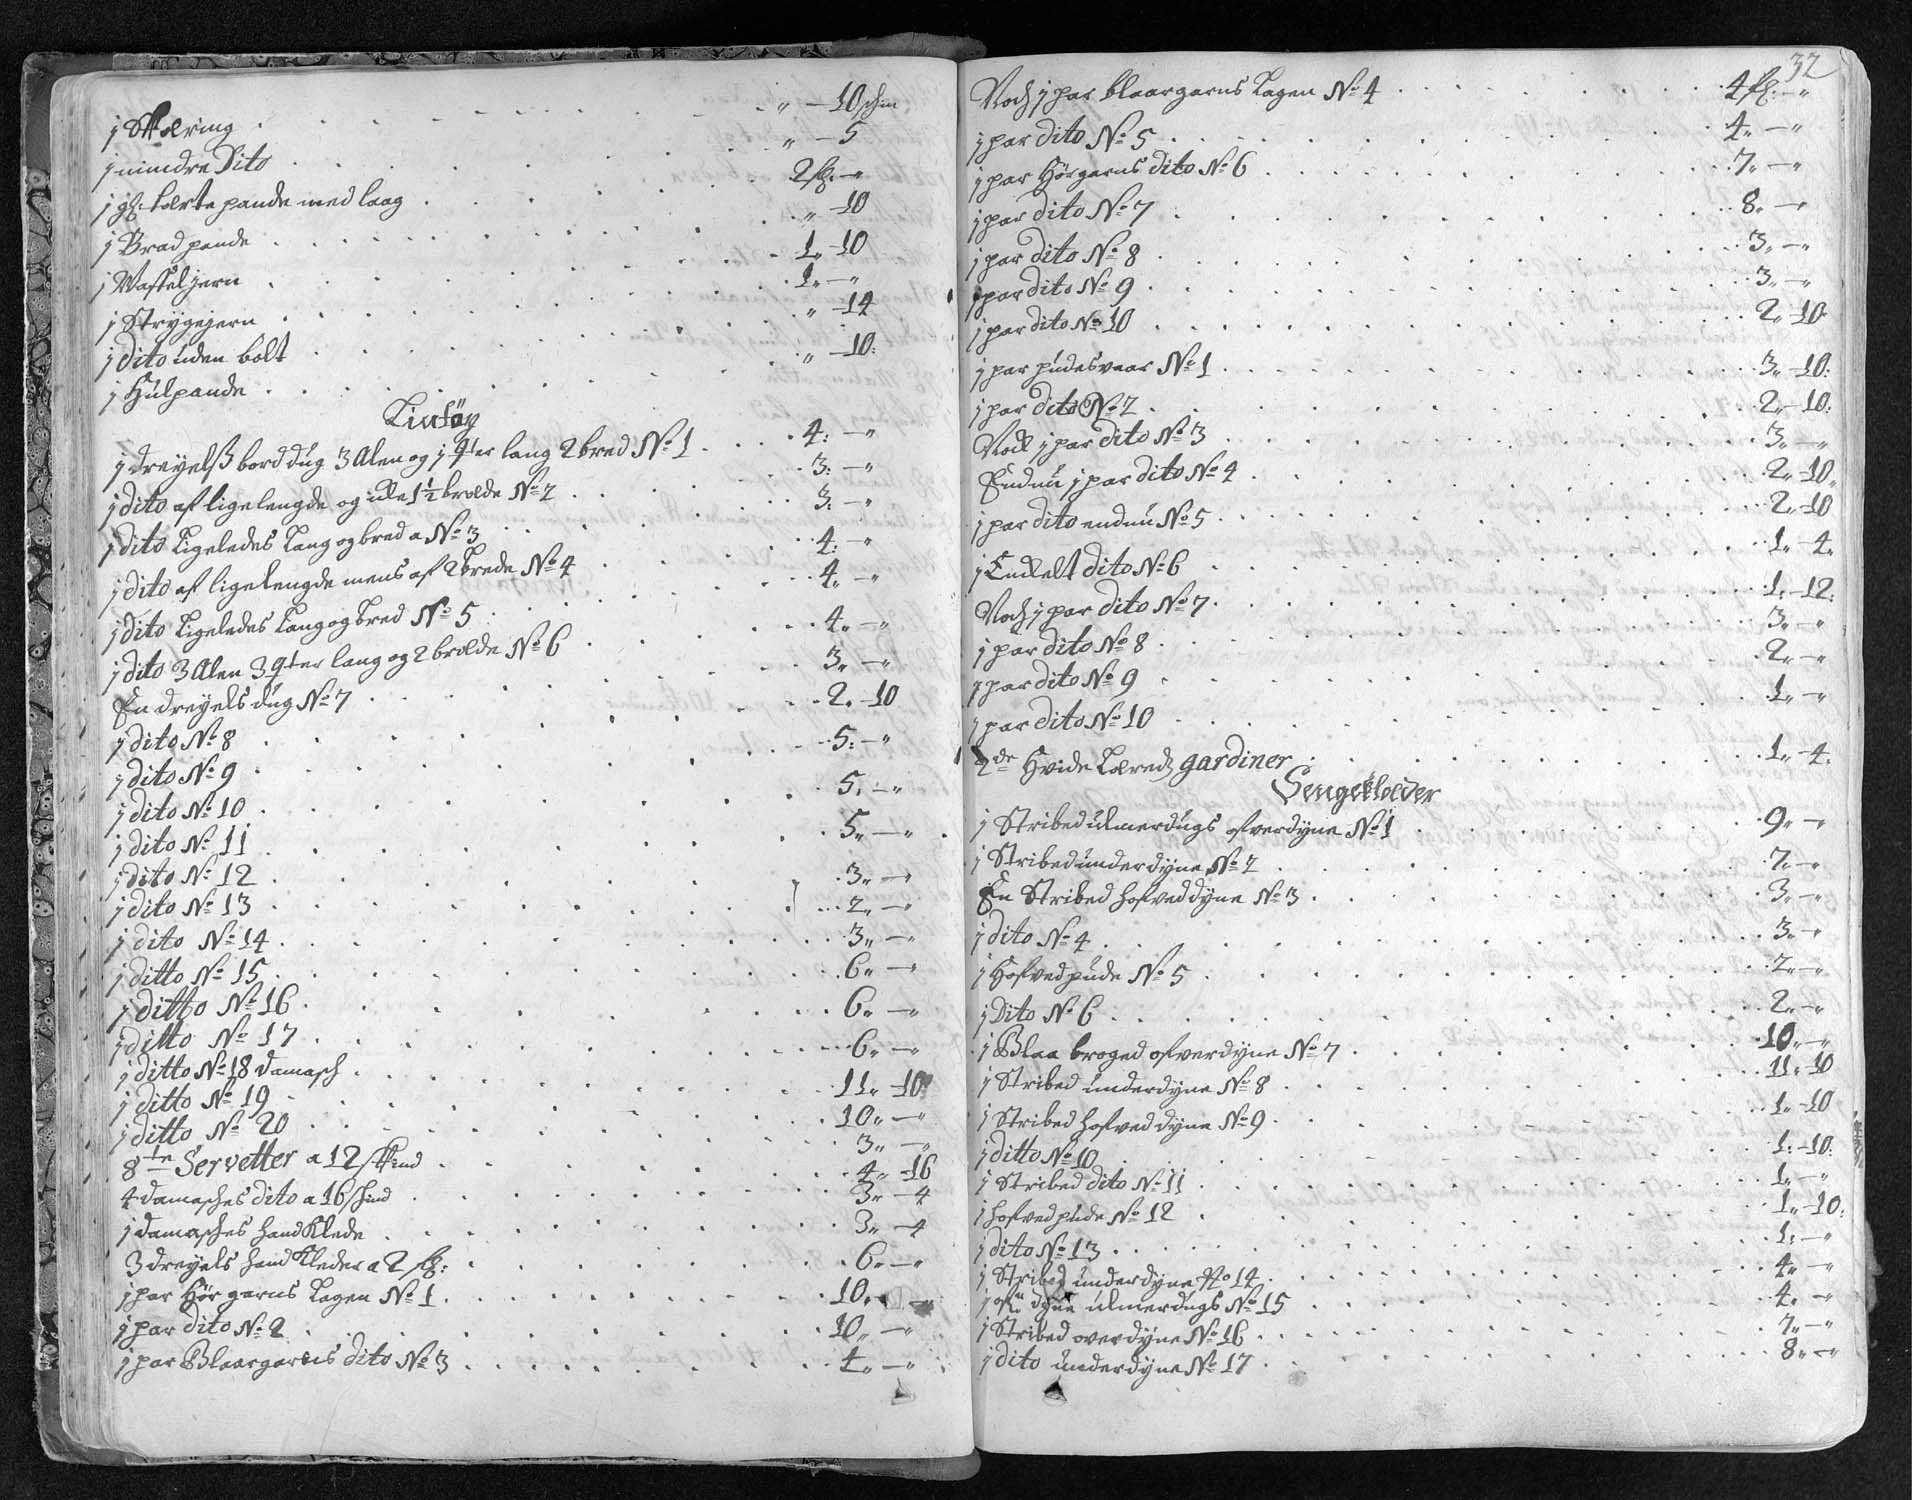 1 Skærring . . . „ – 10 schm
1 mindre Dito . . . „ – 5
1 gl: tærte pande med laag . . . 2 sl: – „
1 Bradpande . . . „ – 10
1 Waffeljern . . . 1„ – 10
1 Strygejern . . . 1„ – „
1 dito uden bolt . . . „ – 14
1 Hulpande . . . „ – 10:
Lintöy
1 dreyelß bord dug 3 Alen og 1 qter lang 2 bred No 1 . . . 4: – „
1 dito af lige lengde og 1½ brede No 2 . . . 3: – „
1 dito Ligeledes Lang og bred a No 3 . . . 3: – „
1 dito af lige lengde mens af 2 brede No 4 . . . 4: – „
1 dito Ligeledes Lang og bred No 5 . . . 4„ – „
1 dito 3 Alen 3 qter lang og 2 brede No 6 . . . 4„ – „
En dreyels dug No 7 . . . 3„ – „
1 dito No 8 . . . 2„ – 10
1 dito No 9 . . . 5: – „
1 dito No 10
1 dito No 11 . . . 5: – „
1 dito No 12 . . . 5„ – „
1 dito No 13 . . . 3„ – „
1 dito No 14 . . . 2„ – „
1 ditto No 15 . . . 3„ – „
1 ditto No 16 . . . 6„ – „
1 ditto No 17 . . . 6„ – „
1 ditto No 18 damasch . . . 6„ – „
1 ditto No 19 . . . 11„ – 10
1 ditto No 20 . . . 10„ – „
8te Servetter a 12 skind . . . 3„ – „
4 damasches dito a 16 skind . . . 4„ – 16
1 damasches hand Klede . . . 3„ – 4
3 dreyels hand Kleder a 2 sl: . . . 3„ – 4
1 par Hör garns Lagen No 1 . . . 6„ – „
1 par dito No 2 . . . 10„ – „
1 par Blaargarns dito No 3 . . . 10„ – „
4„ – „
32
Noch 1 par blaargarns Lagen No 4 . . . 4 sl: – „
1 par dito No 5 . . . 4„ – „
1 par Hörgarns dito No 6 . . . 7„ – „
1 par dito No 7 . . . 8„ – „
1 par dito No 8 . . . 3„ – „
1 par dito No 9 . . . 3„ – „
1 par dito No 10 . . . 2„ – 10
1 par pudesvaar No 1 . . . 3„ – 10:
1 par dito No 2 . . . 2„ – 10:
Nock 1 par dito No 3 . . . 3„ – „
Endnu 1 par dito No 4 . . . 2„ – 10„
1 par dito endnu No 5 . . . 2„ – 10
1 Enkelt dito No 6 . . . 1„ – 4„
Noch 1 par dito No 7 . . . 1„ – 12:
1 par dito No 8 . . . 3„ – „
1 par dito No 9 . . . 2„ – „
1 par dito No 10 . . . 1„ – „
2de Hvide Lærreds gardiner . . . 1„ – 4:
Sengeklæder
1 Stribed ulmerdugs ofverdyne No 1 . . . 9„ – „
1 Stribed underdyne No 2 . . . 7„ – „
En Stribed hofveddyne No 3 . . . 3„ – „
1 dito No 4 . . . 3„ – „
1 Hofvedpude No 5 . . . 2„ – „
1 Dito No 6 . . . 2„ – „
1 Blaa broged ofverdyne No 7 . . . 10„ – „
1 Stribed underdyne No 8 . . . 11„ – 10
1 Stribed hofved dyne No 9 . . . 1„ – 10
1 ditto No 10 . . . 1: – 10:
1 Stribed dito No 11 . . . 1„ – „
1 hofvedpude No 12 . . . 1„ – 10:
1 dito No 13 . . . 1: – „
1 Stribed underdyne No 14 . . . 4„ – „
1 dyne ulmerdugs No 15 . . . 4„ – „
1 Stribed overdyne No 16 . . . 7„ – „
1 dito underdyne No 17 . . . 8„ – „